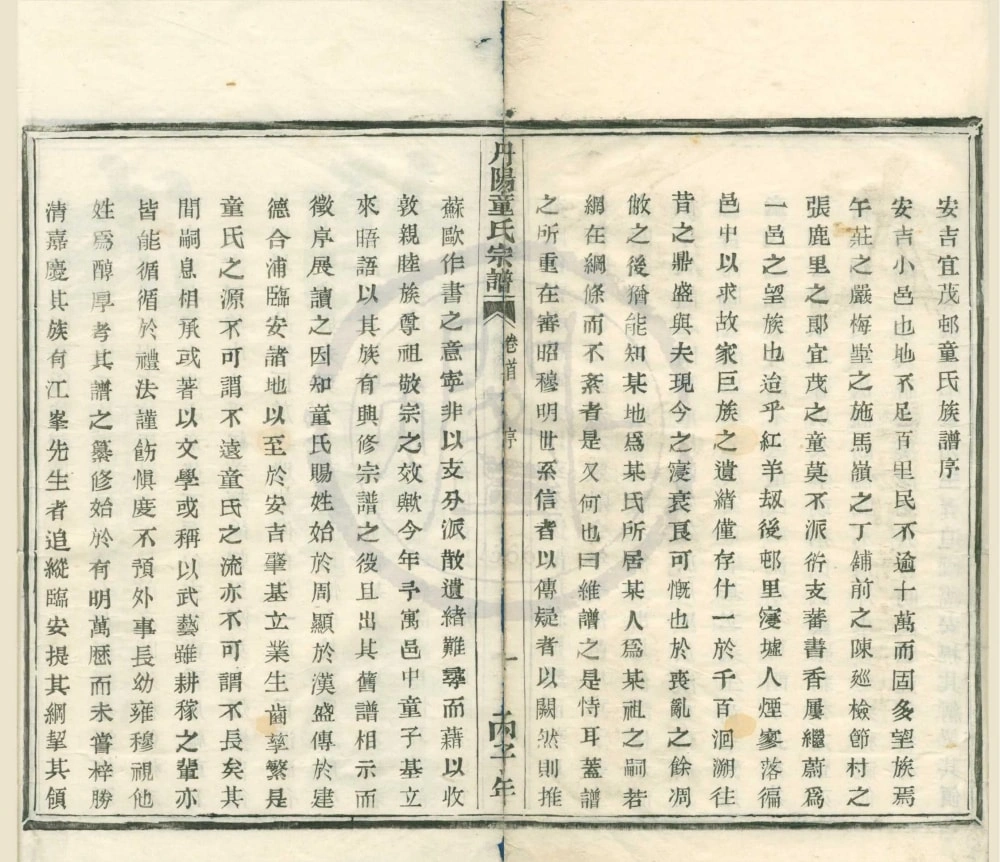 安吉宜茂邨童氏族譜序
安吉小邑也地不足百里民不逾十萬而固多望族焉
午莊之嚴梅墅之施馬嶺之丁鋪前之陳廵檢節村之
張鹿里之郎宜茂之童莫不派衍支蕃書香屢繼蔚爲
一邑之望族也迨乎紅羊刼後邨里寖墟人煙寥落徧
邑中以求故家巨族之遺緒僅存什一於千百洄溯往
昔之鼎盛與夫現今之寖衰良可慨也於喪亂之餘凋
敝之後猶能知某地爲某氏所居某人爲某祖之嗣若
網在綱條而不紊者是又何也曰維譜之是恃耳蓋譜
之所重在審昭穆明世系信者以傳疑者以闕然則推
丹陽童氏宗譜
卷首
序
一
丙子年
蘇歐作書之意寧非以支分派散遺緒難尋而藉以收
敦親睦族尊祖敬宗之效歟今年予寓邑中童子基立
來晤語以其族有興修宗譜之役且出其舊譜相示而
徵序展讀之因知童氏賜姓始於周顯於漢盛傳於建
德合浦臨安諸地以至於安吉肇基立業生齒孳繁是
童氏之源不可謂不遠童氏之流亦不可謂不長矣其
間嗣息相承或著以文學或稱以武藝雖耕稼之輩亦
皆能循循於禮法謹飭愼度不預外事長幼雍穆視他
姓爲醇厚考其譜之纂修始於有明萬厯而未嘗梓勝
清嘉慶其族有江峯先生者追縱臨安提其綱挈其領